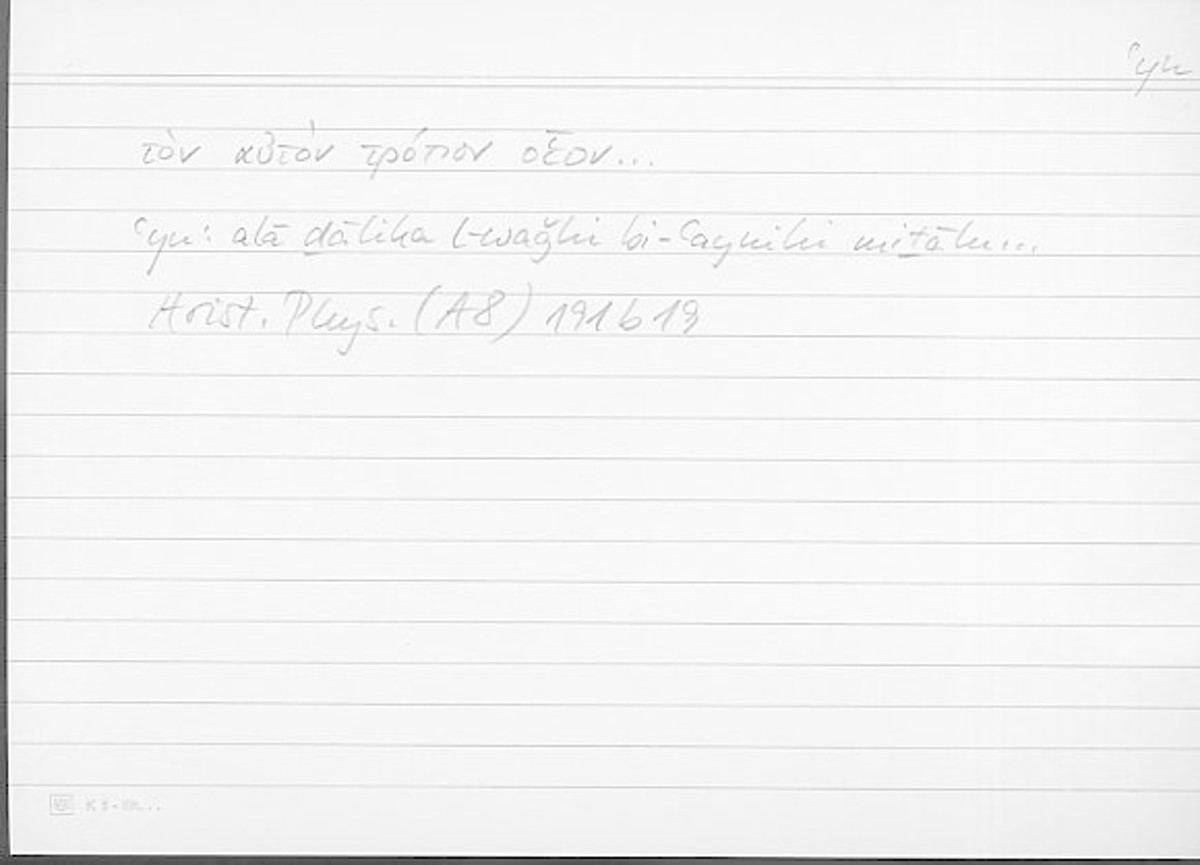 ʿyn
τὸν αὐτὸν τρόπον οἷον...
ʿyn: alā ḏālika l-waǧhi bi-ʿaynihi miṯālu...
Arist. Phys. (A8) 191b19